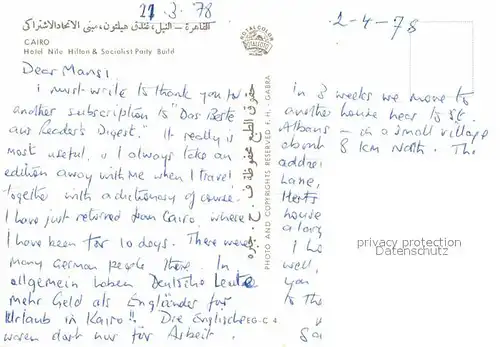 21.3.78
القاهرة - النيل، فندق هيلتون، مبنى الاتحاد الاشتراكى
CAIRO
Hotel Nile Hilton & Socialist Party Build
Dear Mansi
I must write to thank you for
another subscription to "Das Beste
aus Reader's Digest." It really is
most useful. I always take an
edition away with me when I travel
together with a dictionary of course.
I have just returned from Cairo, where
I have been for 10 days. There were
many German people there. In
allgemein haben Deutsche Leute
mehr Geld als Engländer für
Urlaub in Kairo!! Die Englische
waren dort nur für Arbeit.
EG.C 4
KODAKCOLOR
PHOTO AND COPYRIGHTS RESERVED F.H. - GABRA
حقوق الطبع محفوظة ف. ح. جبره
2-4-78
in 3 weeks we move to
another house near to St.
Albans - in a small village
about 8 km North. The
addre
Lane,
Herts
house
along
I ho
well,
you
to th
privacy protection
Datenschutz